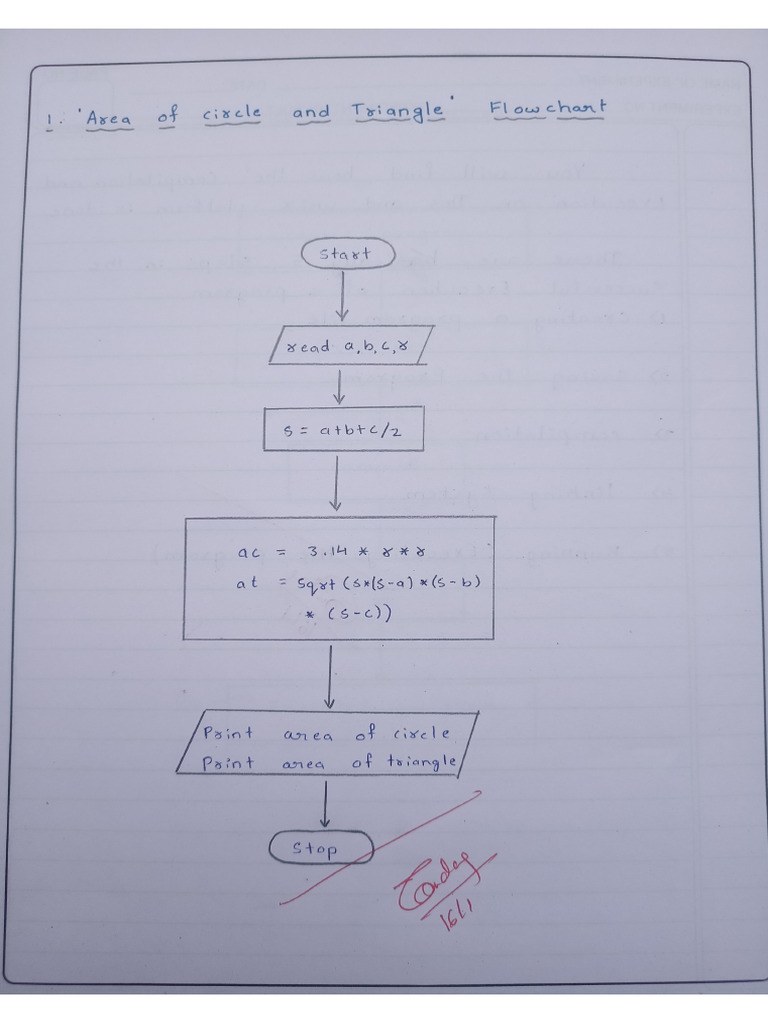 1. 'Area of circle and Triangle' Flowchart
Start
read a,b,c,r
s = a+b+c/2
ac = 3.14 * r * r
at = sqrt (s*(s-a) *(s-b)
* (s-c))
Print area of circle
Print area of triangle
Stop
16/1